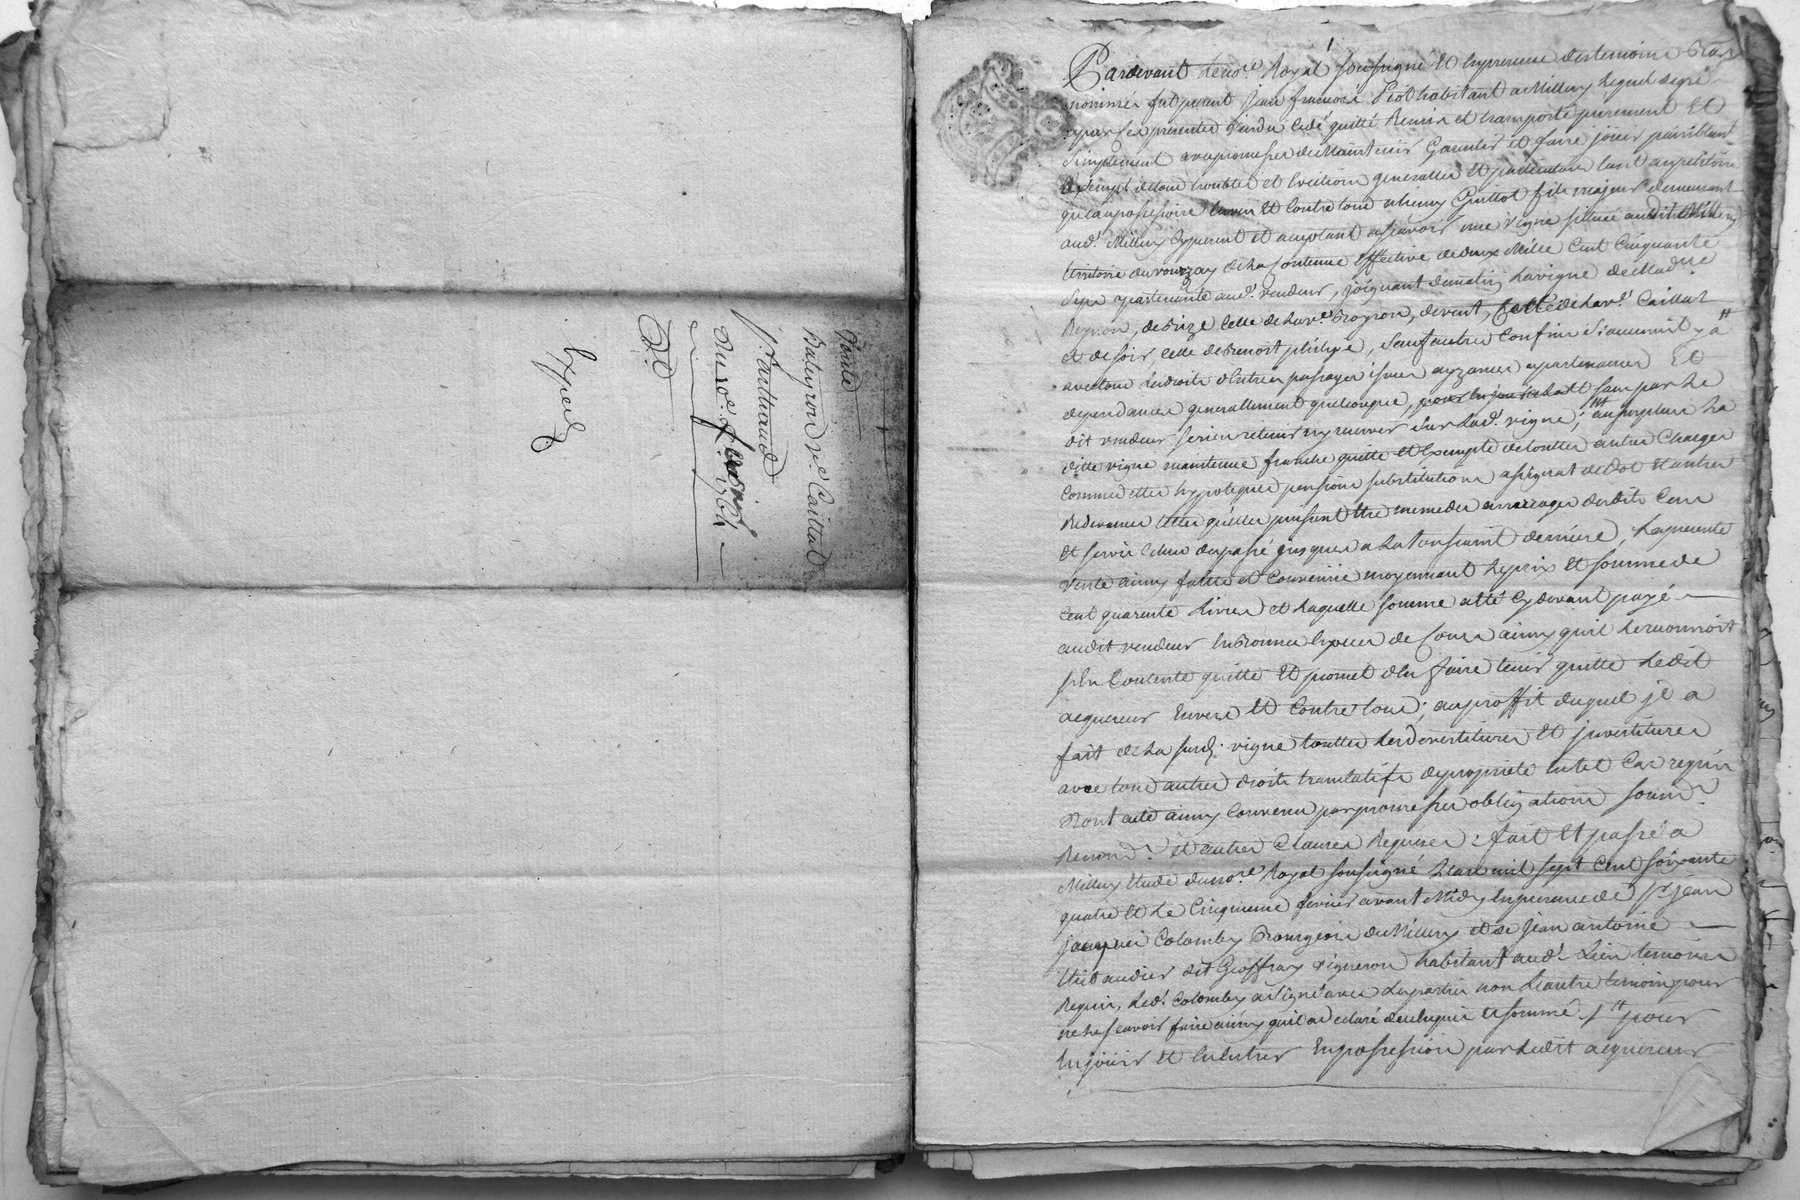 Vente
Bateyron Ve. Caillat
à
du xe. fevrier
1764
Dd
Expedié
Pardevant Le nore. Royal soussigné Et En presence des temoins Bas
nommés fut present Jean francois Piot habitant a Millery Lequel de gré
a par ces presentes Vendu Cedé quitté Remis et transporté purement Et
simplement avec promesse de Maintenir Garentir et faire jouir paisiblement
Exempt de tous troubles et Evictions generalles Et particulieres tant au petitoire
qu'au possessoire Envers Et Contre tous a Guillot fils majeur demeurant
aud. Millery Cy present et acceptant asçavoir une Vigne située audit Millery
territoire du de La Contenue Effective de deux Mille Cent Cinquante
Seps apartenante aud. vendeur, joignant de matin La vigne de Madme.
Peyron, de bize Celle de La ve. Broyron, devent, Celle de La ve. Caillat
et de soir Celle de Benoist philipe, Sauf autres Confins Si aucuns y a
avec tous Ses droits d'Entrées passages issues ayzances apartenances Et
dependances generallement quelconques, sans par Le
dit vendeur se rien retenir ny reserver Sur Lad. vigne; au surplus La
ditte vigne maintenue franche quitte Et Exempte de touttes autres Charges
Comme dettes hypoteques pensions substitutions assignat de dot Et autres
Redevances telles qu'elles puissent Etre meme des arrerages desdits Cens
Et servis Echus du passé jusques a La toussaint derniere, La presente
vente ainsy faitte et Convenue moyennant Le prix Et somme de
Cent quarente Livres et Laquelle somme a Eté Cy devant payé
audit vendeur En Bonnes Especes de Cours ainsy qu'il Le reconnoit
s'En Contente quitte Et promet d'En faire tenir quitte Ledit
aquereur Envers Et Contre tous; au proffit duquel jl a
fait de La susd. vigne touttes Les devestitures Et jnvestitures
avec tous autres droits translatifs de propriété En tel Cas requis
Dont acte ainsy Convenu par promesses obligations soumns.
Renons. et autres Clauses Requises: fait Et passé a
Millery Etude du nore. Royal soussigné L'an mil sept Cent soixante
quatre Et Le Cinquieme fevrier avant Midy En presence de sr. jean
jacques Colomby Bourgeois de Millery et de Jean antoine
thibaudier dit Geoffray vigneron habitant aud. Lieu temoins
Requis, Led. Colomby a signé avec Les parties non L'autre temoin pour
ne Le sçavoir faire ainsy qu'il a declaré de ce Enquis Et sommé. pour
En jouir Et En Entrer En possession par Ledit aquereur